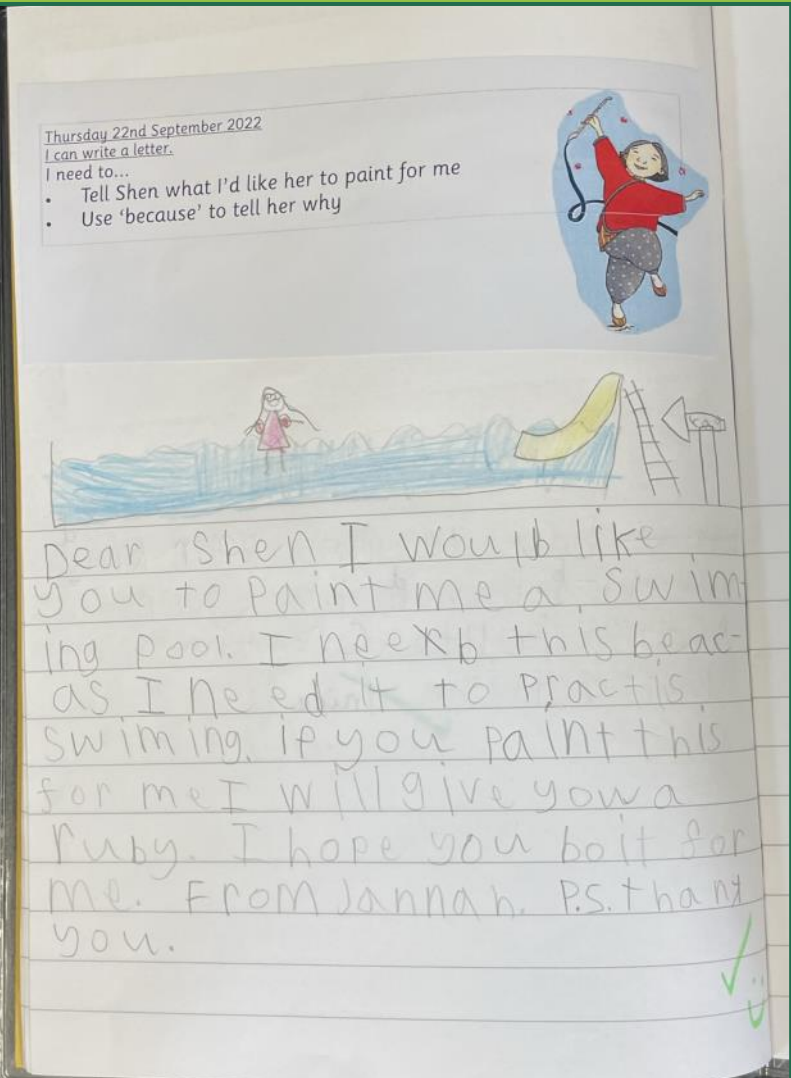 Thursday 22nd September 2022
I can write a letter.
I need to...
• Tell Shen what I'd like her to paint for me
• Use 'because' to tell her why
Dear Shen I woulb like
you to paint me a swim-
ing pool. I neexb this beac-
as I need it to practis
swiming. if you paint this
for me I will give yow a
ruby. I hope you bo it for
me. From Jannah. P.S. thank
you.